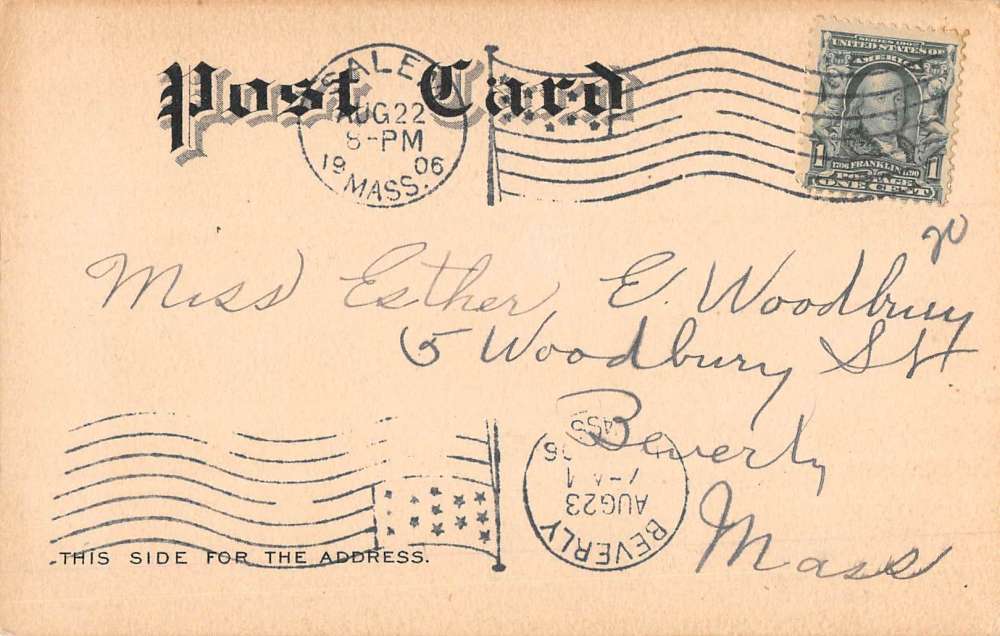 Post Card
SALEM
AUG 22
8-PM
19 06
MASS.
SERIES 1902
UNITED STATES OF
AMERICA
1 1706 FRANKLIN 1790 1
POSTAGE
ONE CENT
Miss Esther E. Woodbury
5 Woodbury St
Beverly
Mass
BEVERLY
AUG 23
THIS SIDE FOR THE ADDRESS.